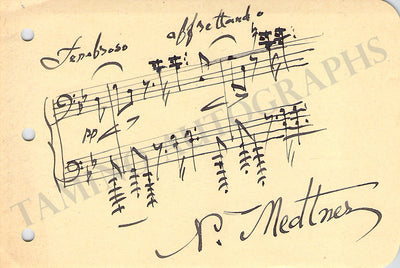 Tenebroso affrettando
pp
N. Medtner
TAMINO AUTOGRAPHS